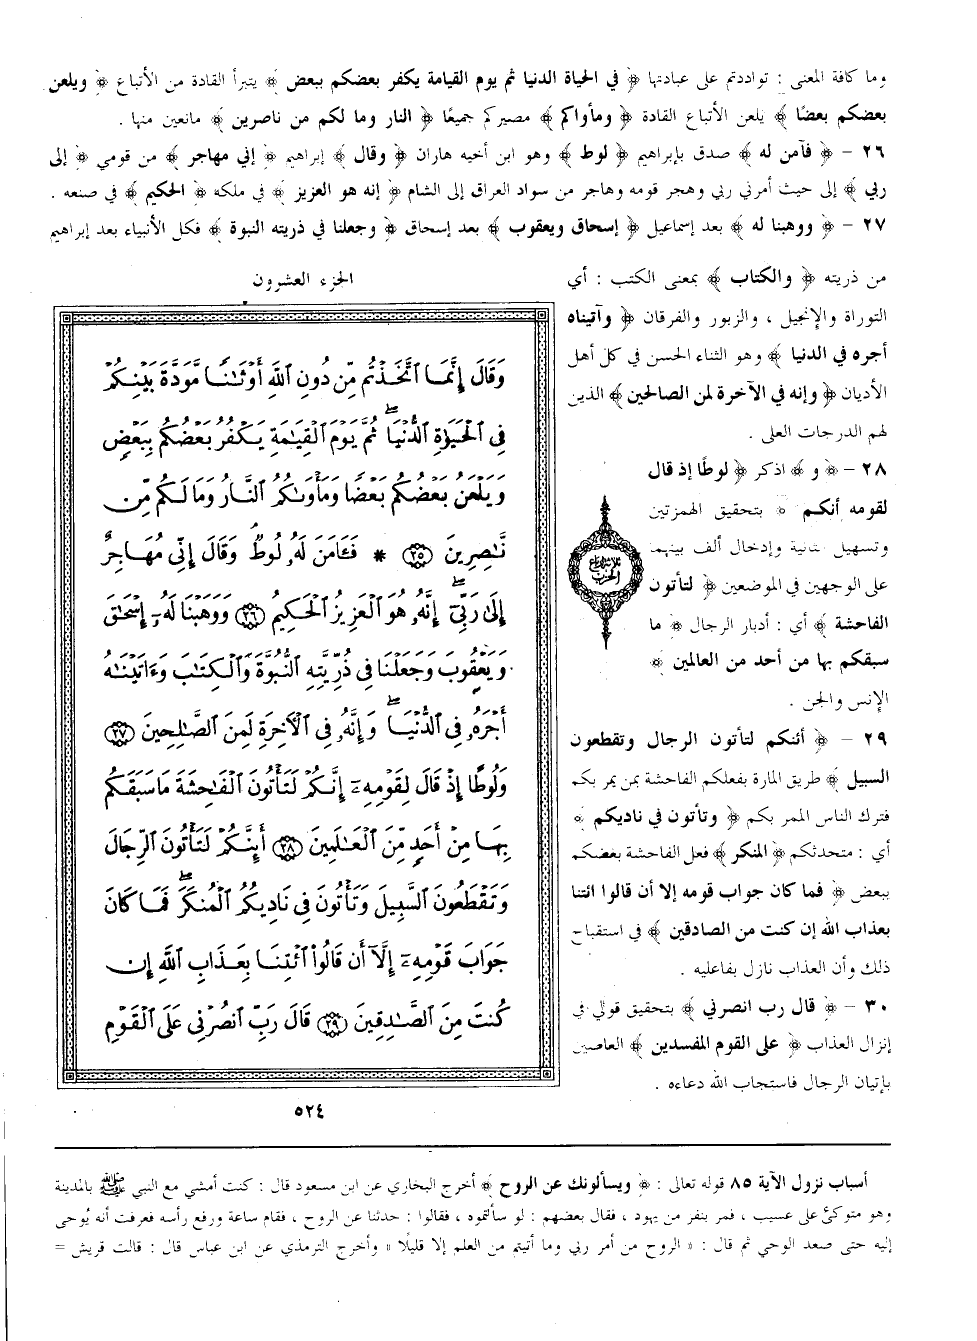 وما كافة المعنى : تواددتم على عبادتها ﴿ في الحياة الدنيا ثم يوم القيامة يكفر بعضكم ببعض ﴾ يتبرأ القادة من الأتباع ﴿ ويلعن
بعضكم بعضًا ﴾ يلعن الأتباع القادة ﴿ ومأواكم ﴾ مصيركم جميعًا ﴿ النار وما لكم من ناصرين ﴾ مانعين منها .
٢٦ – ﴿ فآمن له ﴾ صدق بإبراهيم ﴿ لوط ﴾ وهو ابن أخيه هاران ﴿ وقال ﴾ إبراهيم ﴿ إني مهاجر ﴾ من قومي ﴿ إلى
ربي ﴾ إلى حيث أمرني ربي وهجر قومه وهاجر من سواد العراق إلى الشام ﴿ إنه هو العزيز ﴾ في ملكه ﴿ الحكيم ﴾ في صنعه .
٢٧ – ﴿ ووهبنا له ﴾ بعد إسماعيل ﴿ إسحاق ويعقوب ﴾ بعد إسحاق ﴿ وجعلنا في ذريته النبوة ﴾ فكل الأنبياء بعد إبراهيم
من ذريته ﴿ والكتاب ﴾ بمعنى الكتب : أي
التوراة والإنجيل ، والزبور والفرقان ﴿ وآتيناه
أجره في الدنيا ﴾ وهو الثناء الحسن في كل أهل
الأديان ﴿ وإنه في الآخرة لمن الصالحين ﴾ الذين
لهم الدرجات العلى .
٢٨ – ﴿ و ﴾ اذكر ﴿ لوطًا إذ قال
لقومه أنكم ﴾ بتحقيق الهمزتين
وتسهيل الثانية وإدخال ألف بينهما
على الوجهين في الموضعين ﴿ لتأتون
الفاحشة ﴾ أي : أدبار الرجال ﴿ ما
سبقكم بها من أحد من العالمين ﴾
الإنس والجن .
٢٩ – ﴿ أئنكم لتأتون الرجال وتقطعون
السبيل ﴾ طريق المارة بفعلكم الفاحشة بمن يمر بكم
فترك الناس الممر بكم ﴿ وتأتون في ناديكم ﴾
أي : متحدثكم ﴿ المنكر ﴾ فعل الفاحشة بعضكم
ببعض ﴿ فما كان جواب قومه إلا أن قالوا ائتنا
بعذاب الله إن كنت من الصادقين ﴾ في استقباح
ذلك وأن العذاب نازل بفاعليه .
٣٠ – ﴿ قال رب انصرني ﴾ بتحقيق قولي في
إنزال العذاب ﴿ على القوم المفسدين ﴾ العاصين
بإتيان الرجال فاستجاب الله دعاءه .
ثلاثة أرباع
الحزب
الجزء العشرون
وَقَالَ إِنَّمَا ٱتَّخَذْتُم مِّن دُونِ ٱللَّهِ أَوْثَٰنًا مَّوَدَّةَ بَيْنِكُمْ
فِى ٱلْحَيَوٰةِ ٱلدُّنْيَا ۖ ثُمَّ يَوْمَ ٱلْقِيَٰمَةِ يَكْفُرُ بَعْضُكُم بِبَعْضٍ
وَيَلْعَنُ بَعْضُكُم بَعْضًا وَمَأْوَىٰكُمُ ٱلنَّارُ وَمَا لَكُم مِّن
نَّٰصِرِينَ ٢٥ * فَـَٔامَنَ لَهُۥ لُوطٌ ۘ وَقَالَ إِنِّى مُهَاجِرٌ
إِلَىٰ رَبِّىٓ ۖ إِنَّهُۥ هُوَ ٱلْعَزِيزُ ٱلْحَكِيمُ ٢٦ وَوَهَبْنَا لَهُۥٓ إِسْحَٰقَ
وَيَعْقُوبَ وَجَعَلْنَا فِى ذُرِّيَّتِهِ ٱلنُّبُوَّةَ وَٱلْكِتَٰبَ وَءَاتَيْنَٰهُ
أَجْرَهُۥ فِى ٱلدُّنْيَا ۖ وَإِنَّهُۥ فِى ٱلْأَخِرَةِ لَمِنَ ٱلصَّٰلِحِينَ ٢٧
وَلُوطًا إِذْ قَالَ لِقَوْمِهِۦٓ إِنَّكُمْ لَتَأْتُونَ ٱلْفَٰحِشَةَ مَا سَبَقَكُم
بِهَا مِنْ أَحَدٍ مِّنَ ٱلْعَٰلَمِينَ ٢٨ أَئِنَّكُمْ لَتَأْتُونَ ٱلرِّجَالَ
وَتَقْطَعُونَ ٱلسَّبِيلَ وَتَأْتُونَ فِى نَادِيكُمُ ٱلْمُنكَرَ ۖ فَمَا كَانَ
جَوَابَ قَوْمِهِۦٓ إِلَّآ أَن قَالُوا۟ ٱئْتِنَا بِعَذَابِ ٱللَّهِ إِن
كُنتَ مِنَ ٱلصَّٰدِقِينَ ٢٩ قَالَ رَبِّ ٱنصُرْنِى عَلَى ٱلْقَوْمِ
٥٢٤
أسباب نزول الآية ٨٥ قوله تعالى : ﴿ ويسألونك عن الروح ﴾ أخرج البخاري عن ابن مسعود قال : كنت أمشي مع النبي ﷺ بالمدينة
وهو متوكئ على عسيب ، فمر بنفر من يهود ، فقال بعضهم : لو سألتموه ، فقالوا : حدثنا عن الروح ، فقام ساعة ورفع رأسه فعرفت أنه يُوحى
إليه حتى صعد الوحي ثم قال : « الروح من أمر ربي وما أتيتم من العلم إلا قليلًا » وأخرج الترمذي عن ابن عباس قال : قالت قريش =